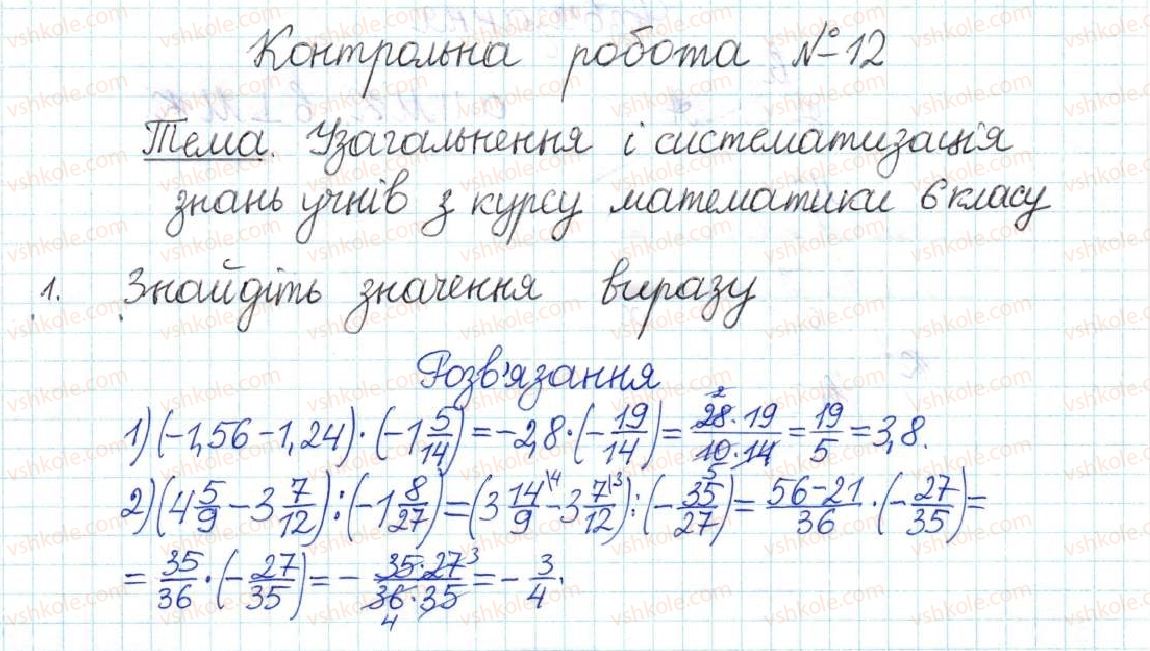 Контрольна робота №12
Тема. Узагальнення і систематизація
знань учнів з курсу математики 6 класу
1. Знайдіть значення виразу
Розв'язання
1) (-1,56 - 1,24) · (-1 5/14) = -2,8 · (-19/14) = 28·19/10·14 = 19/5 = 3,8.
2) (4 5/9 - 3 7/12) : (-1 8/27) = (3 14/9 - 3 7/12) : (-35/27) = 56-21/36 · (-27/35) =
= 35/36 · (-27/35) = - 35·27/36·35 = - 3/4.